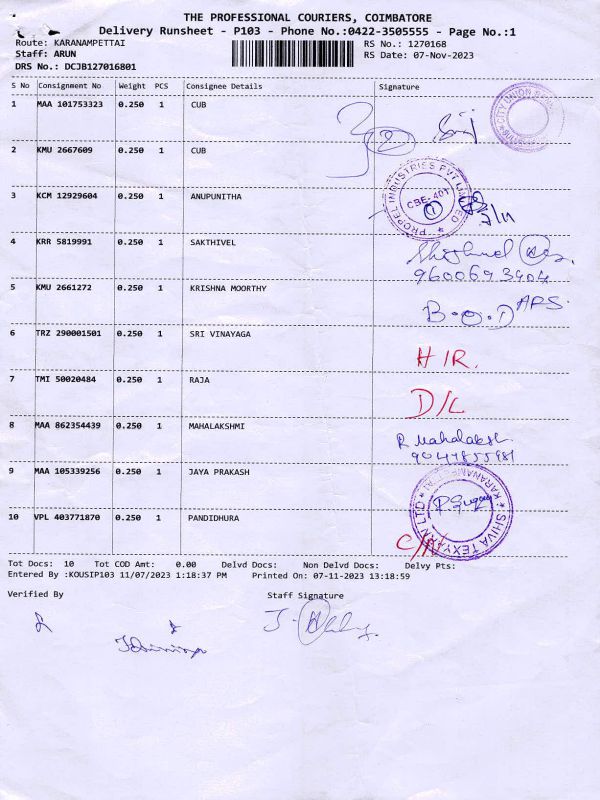 THE PROFESSIONAL COURIERS, COIMBATORE
Delivery Runsheet - P103 - Phone No.:0422-3505555 - Page No.:1
Route: KARANAMPETTAI RS No.: 1270168
Staff: ARUN RS Date: 07-Nov-2023
DRS No.: DCJB127016801
S No Consignment No Weight PCS Consignee Details Signature
1 MAA 101753323 0.250 1 CUB
CITY UNION BANK
2
2 KMU 2667609 0.250 1 CUB
PROPEL INDUSTRIES PVT LIMITED
CBE-401
1
3 KCM 12929604 0.250 1 ANUPUNITHA
4 KRR 5819991 0.250 1 SAKTHIVEL
9600693404
5 KMU 2661272 0.250 1 KRISHNA MOORTHY B.O.D
6 TRZ 290001501 0.250 1 SRI VINAYAGA H/R.
7 TMI 50020484 0.250 1 RAJA D/L
8 MAA 862354439 0.250 1 MAHALAKSHMI R Mahalaksh
9 MAA 105339256 0.250 1 JAYA PRAKASH
SHIVA TEXYARN LTD
10 VPL 403771870 0.250 1 PANDIDHURA
Tot Docs: 10 Tot COD Amt: 0.00 Delvd Docs: Non Delvd Docs: Delvy Pts:
Entered By :KOUSIP103 11/07/2023 1:18:37 PM Printed On: 07-11-2023 13:18:59
Verified By Staff Signature